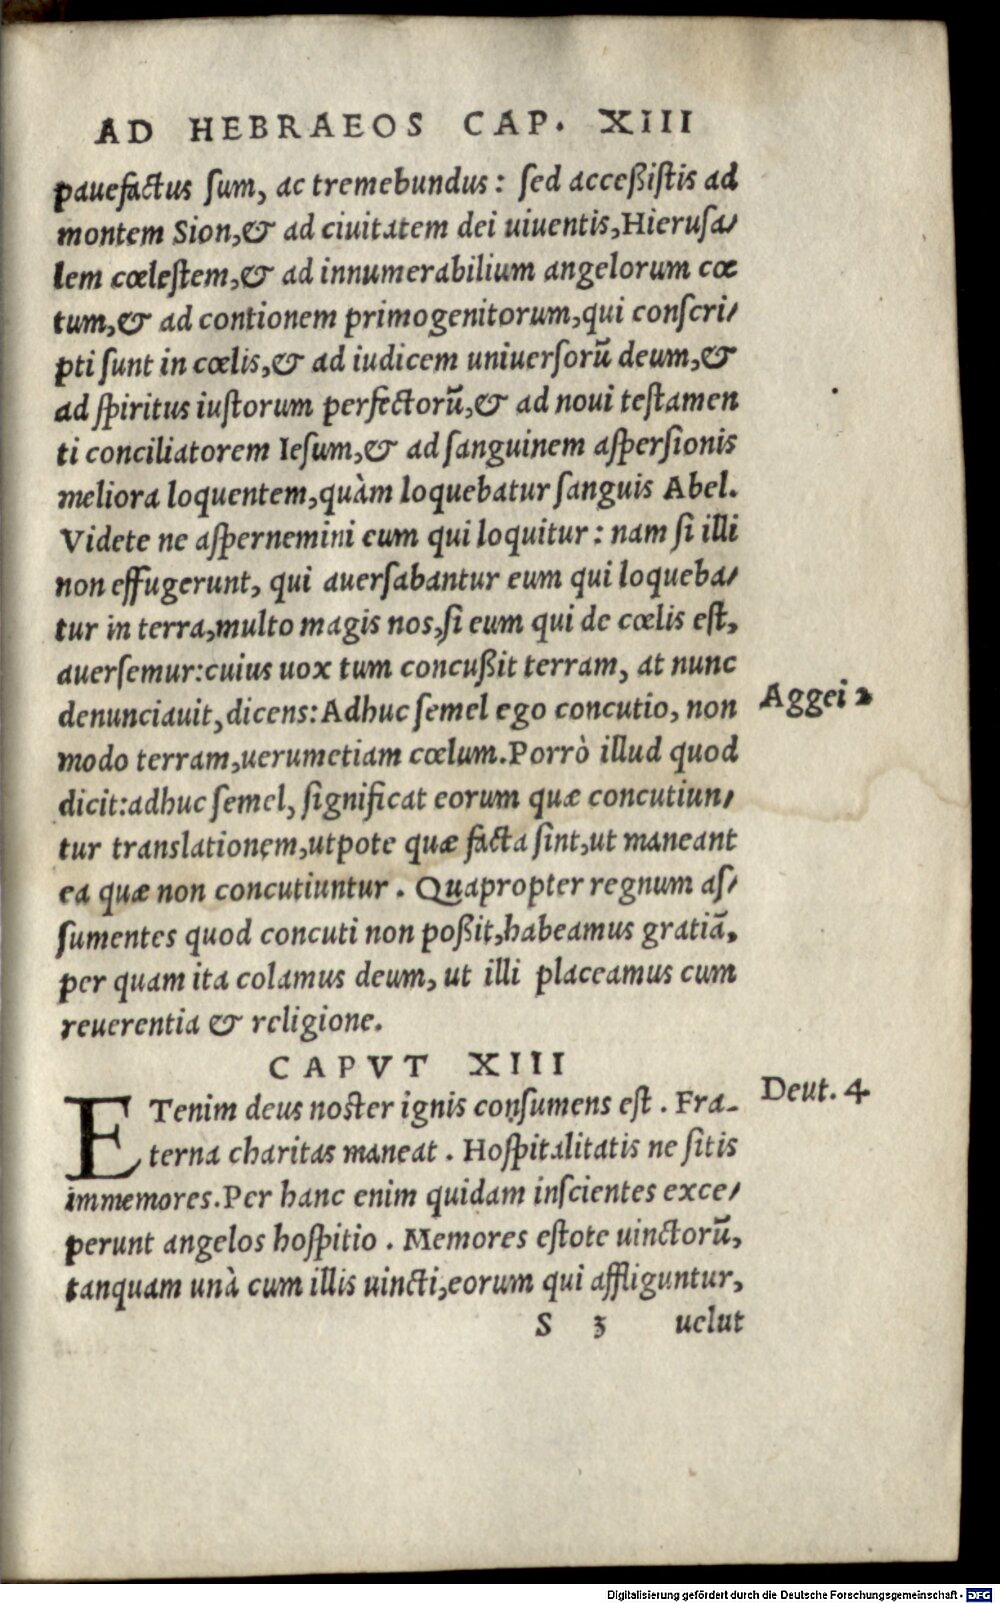 AD HEBRAEOS CAP. XIII
pauefactus sum, ac tremebundus: sed acceßistis ad
montem Sion,& ad ciuitatem dei uiuentis,Hierusa/
lem cœlestem,& ad innumerabilium angelorum cœ
tum,& ad contionem primogenitorum,qui conscri/
pti sunt in cœlis,& ad iudicem uniuersorũ deum,&
ad spiritus iustorum perfectorũ,& ad noui testamen
ti conciliatorem Iesum,& ad sanguinem aspersionis
meliora loquentem,quàm loquebatur sanguis Abel.
Videte ne aspernemini eum qui loquitur: nam si illi
non effugerunt, qui auersabantur eum qui loqueba/
tur in terra,multo magis nos,si eum qui de cœlis est,
auersemur:cuius uox tum concußit terram, at nunc
denunciauit,dicens:Adhuc semel ego concutio, non
Aggei 2
modo terram,uerumetiam cœlum.Porrò illud quod
dicit:adhuc semel, significat eorum quæ concutiun/
tur translationem,utpote quæ facta sint,ut maneant
ea quæ non concutiuntur. Quapropter regnum as/
sumentes quod concuti non poßit,habeamus gratiã,
per quam ita colamus deum, ut illi placeamus cum
reuerentia & religione.
CAPVT XIII
ETenim deus noster ignis consumens est. Fra-
Deut. 4
terna charitas maneat. Hospitalitatis ne sitis
immemores.Per hanc enim quidam inscientes exce/
perunt angelos hospitio. Memores estote uinctorũ,
tanquam unà cum illis uincti,eorum qui affliguntur,
S 3 uelut
Digitalisierung gefördert durch die Deutsche Forschungsgemeinschaft - DFG